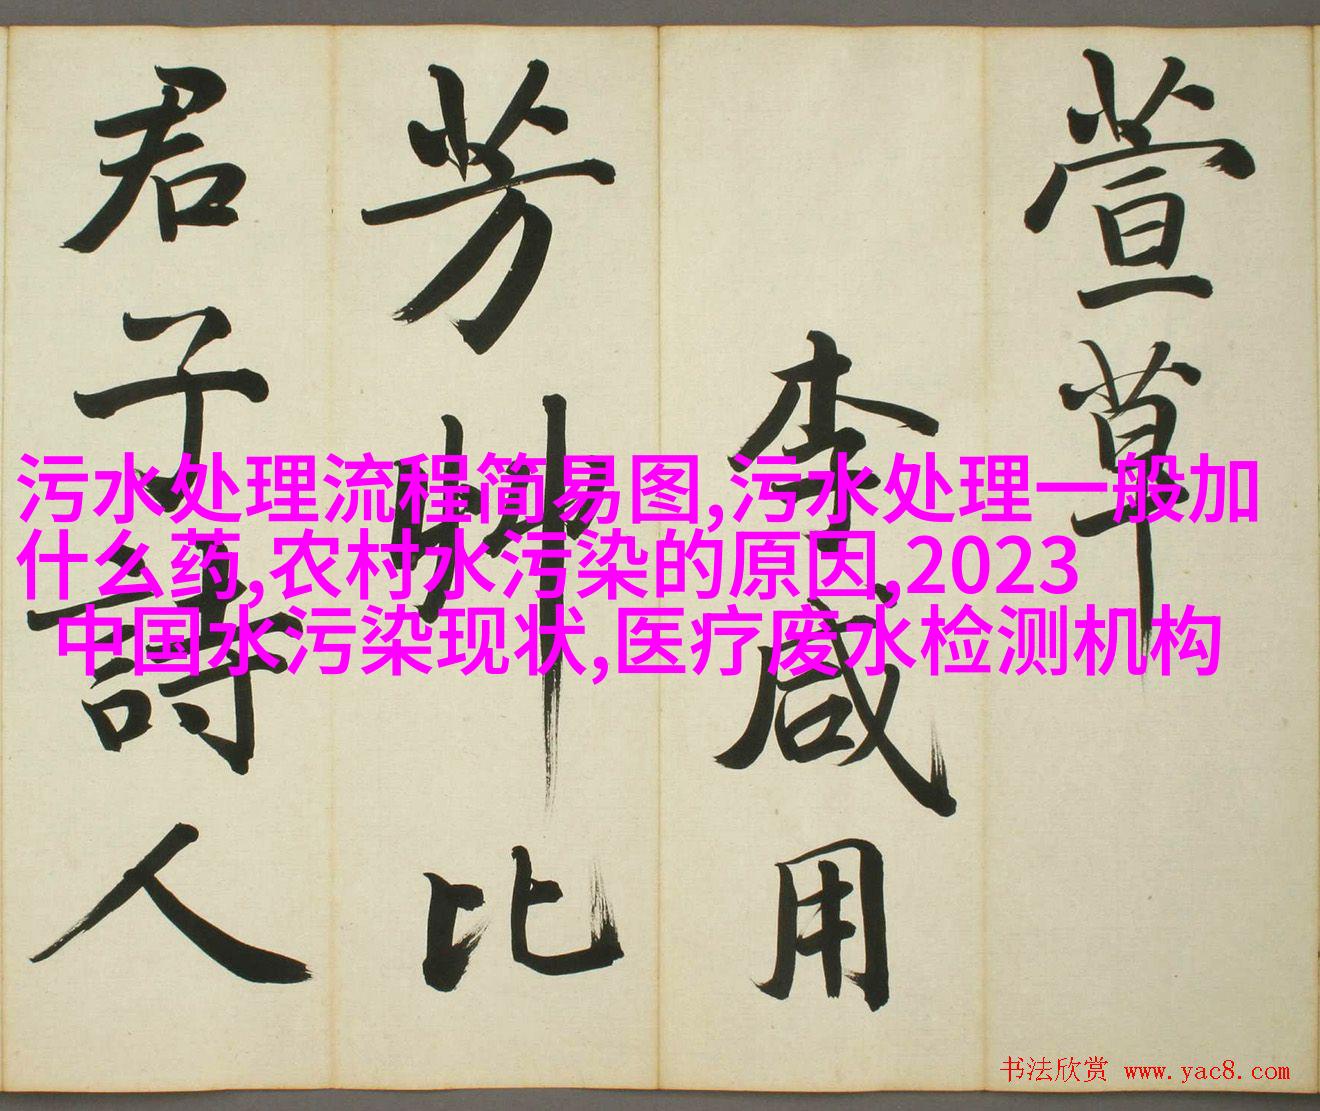 萱草
李咸用
芳艸比
君子詩人
污水处理流程简易图,污水处理一般加
什么药,农村水污染的原因,2023
中国水污染现状,医疗废水检测机构
书法欣赏 www.yac8.com